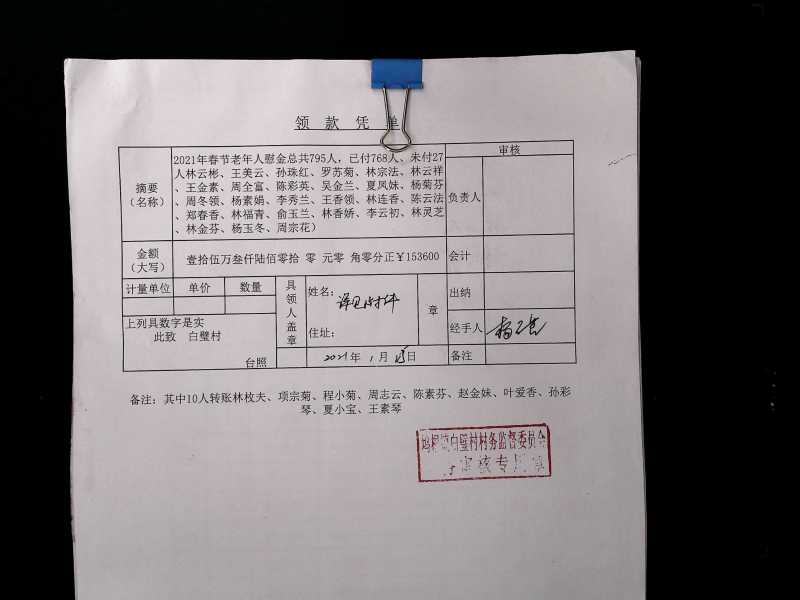 领 款 凭 单
审核
摘要
（名称）
2021年春节老年人慰金总共795人，已付768人、未付27
人林云彬、王美云、孙珠红、罗苏菊、林宗法、林云祥
、王金素、周全富、陈彩英、吴金兰、夏凤妹、杨菊芬
、周冬领、杨素娟、李秀兰、王香领、林连香、陈云法
、郑春香、林福青、俞玉兰、林香娇、李云初、林灵芝
、林金芬、杨玉冬、周宗花）
负责人
金额
（大写）
壹拾伍万叁仟陆佰零拾 零 元零 角零分正￥153600
会计
计量单位 单价 数量
具领人盖章
姓名：
详见附件
住址：
章
出纳
上列具数字是实
此致 白璧村
台照
经手人
2021年 1 月 15日
备注
备注：其中10人转账林枚夫、项宗菊、程小菊、周志云、陈素芬、赵金妹、叶爱香、孙彩
琴、夏小宝、王素琴
白璧村村务监督委员会
审核专用章